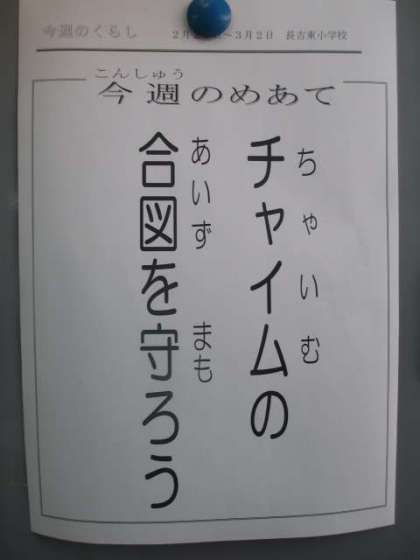 今週のくらし
2月 ～3月2日 長吉東小学校
こんしゅう
今週のめあて
ちゃいむ
チャイムの
あいず まも
合図を守ろう